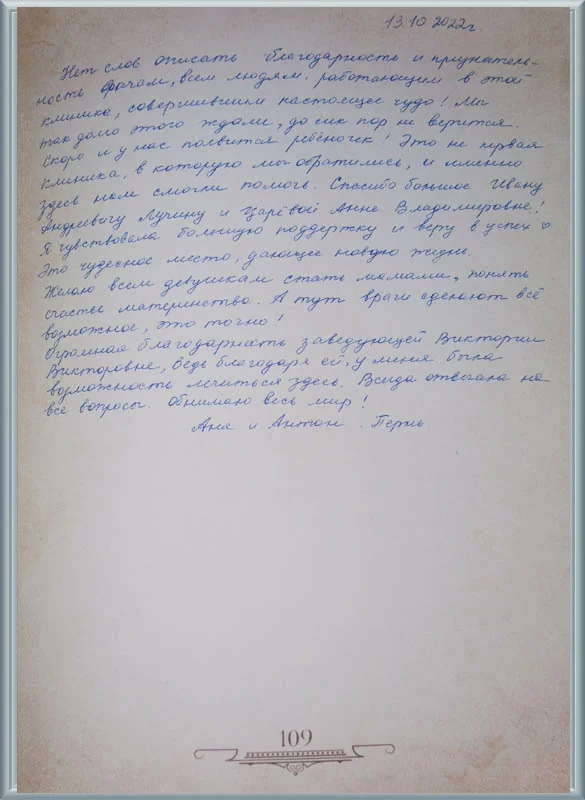 13.10.2022г.
Нет слов описать благодарность и признатель-
ность врачам, всем людям, работающим в этой
клинике, совершившим настоящее чудо! Мы
так долго этого ждали, до сих пор не верится.
Скоро и у нас появится ребёночек! Это не первая
клиника, в которую мы обратились, и именно
здесь нам смогли помочь. Спасибо большое Ивану
Андреевичу Лузину и Царёвой Анне Владимировне!
Я чувствовала большую поддержку и веру в успех ♡
Это чудесное место, дающее новую жизнь.
Желаю всем девушкам стать мамами, понять
счастье материнства. А тут врачи сделают всё
возможное, это точно!
Огромная благодарность заведующей Виктории
Викторовне, ведь благодаря ей, у меня была
возможность лечиться здесь. Всегда отвечала на
все вопросы. Обнимаю весь мир!
Аня и Антон. Пермь
109